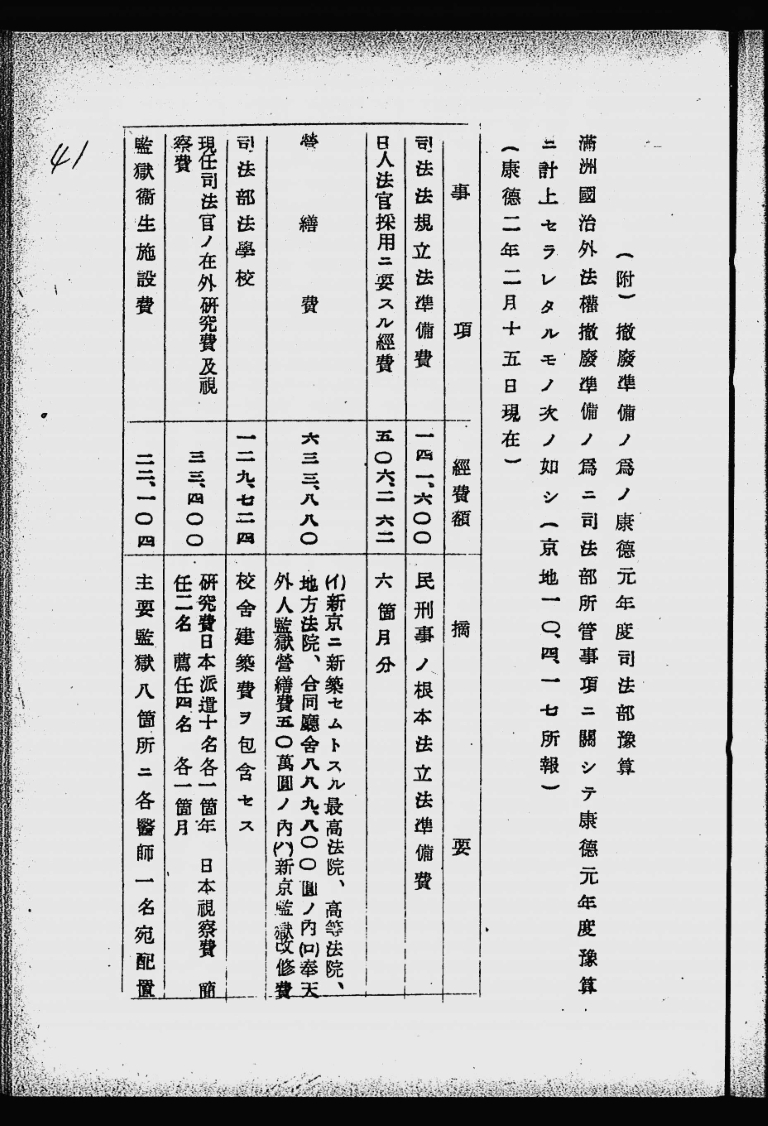 (附)撤廢準備ノ爲ノ康德元年度司法部豫算
滿洲國治外法權撤廢準備ノ爲ニ司法部所管事項ニ關シテ康德元年度豫算
ニ計上セラレタルモノ次ノ如シ(京地一〇、四、一七所報)
(康德二年二月十五日現在)
事項 經費額 摘要
司法法規立法準備費 一四一、六〇〇 民刑事ノ根本法立法準備費
日人法官採用ニ要スル經費 五〇六、二六二 六箇月分
營繕費 六三三、八八〇 (イ)新京ニ新築セムトスル最高法院、高等法院、
地方法院、合同廳舍八八九、八〇〇圓ノ内(ロ)奉天
外人監獄營繕費五〇萬圓ノ内(ハ)新京監獄改修費
司法部法學校 一二九、七二四 校舍建築費ヲ包含セス
現任司法官ノ在外研究費及視
察費 三三、四〇〇 研究費日本派遣十名各一箇年 日本視察費 簡
任二名 薦任四名 各一箇月
監獄衞生施設費 二二、一〇四 主要監獄八箇所ニ各醫師一名宛配置
41